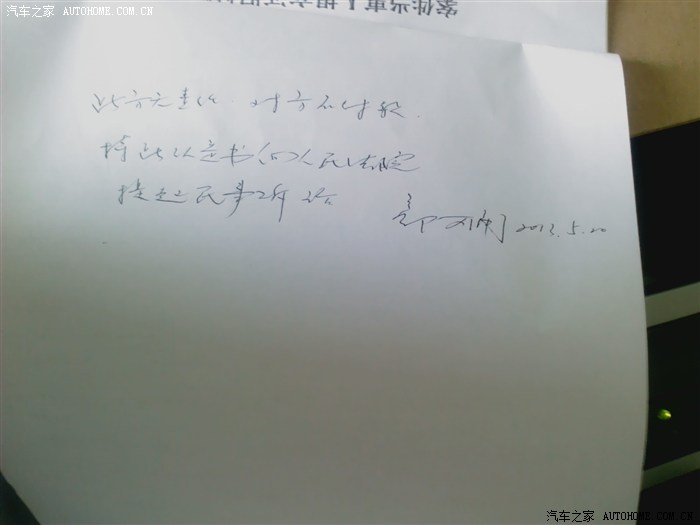 汽车之家 AUTOHOME.COM.CN
案件当事人提交证明
此方无责任 对方不付款.
持此认定书向人民法院
提起民事诉讼
2013.5.20
汽车之家 AUTOHOME.COM.CN